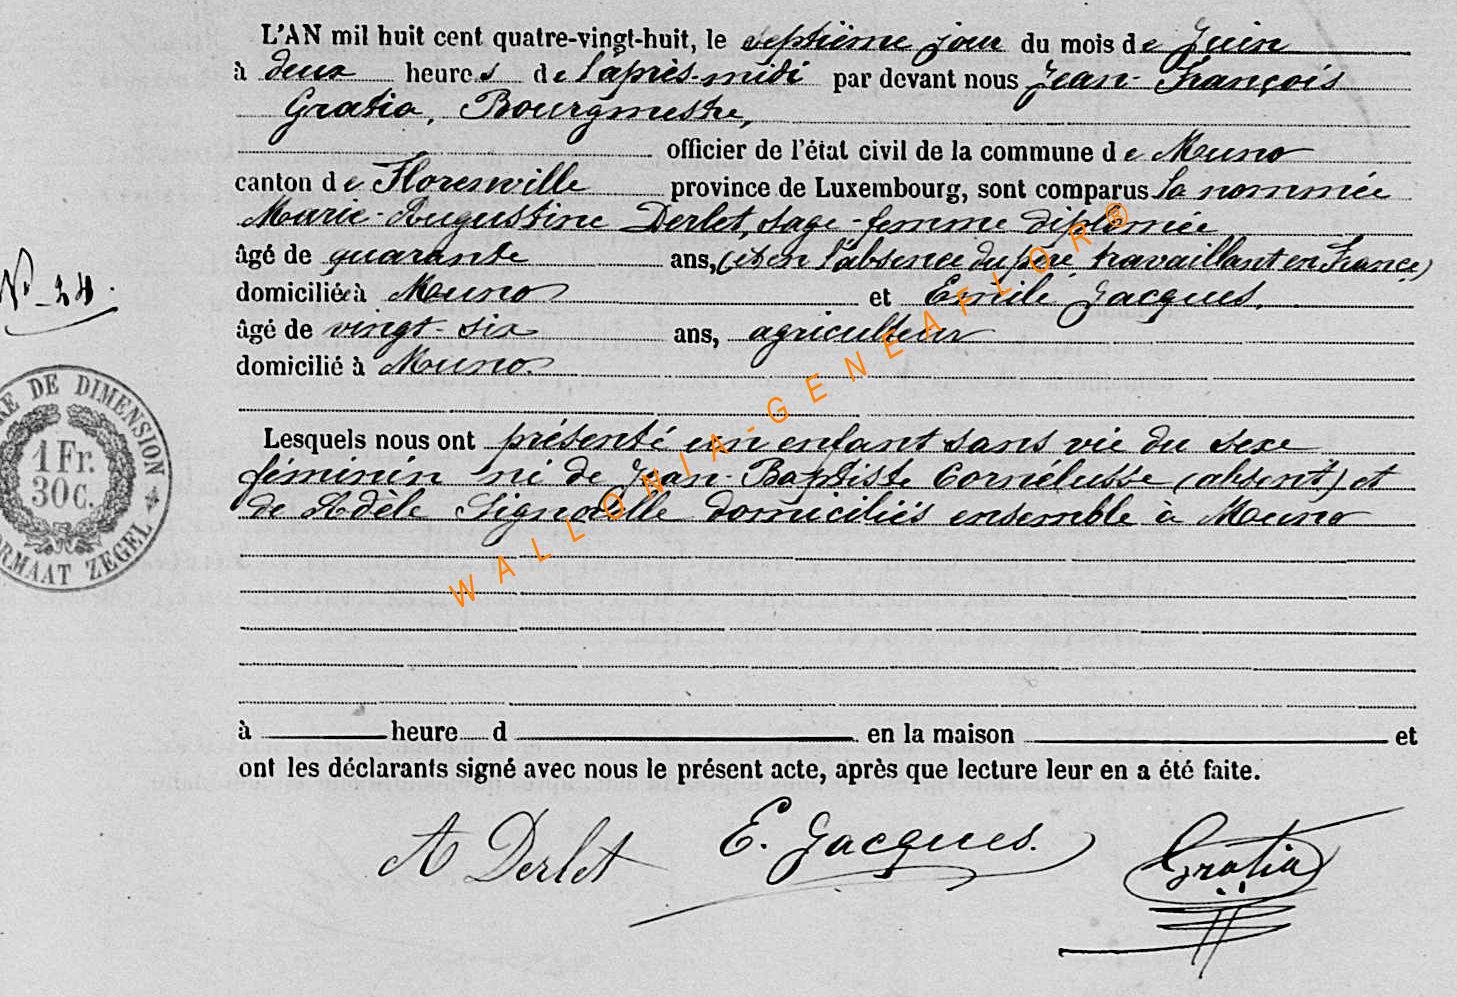 L'AN mil huit cent quatre-vingt-huit, le septième jour du mois de Juin
à deux heures de l'après-midi par devant nous Jean-François
Gratia, Bourgmestre,
officier de l'état civil de la commune de Muno
canton de Florenville province de Luxembourg, sont comparus la nommée
Marie-Augustine Derlet, sage-femme diplomée
âgé de quarante ans, (et en l'absence du père travaillant en France)
domiciliée à Muno et Emile Jacques,
N° 24.
âgé de vingt-six ans, agriculteur
domicilié à Muno.
Lesquels nous ont présenté un enfant sans vie du sexe
féminin né de Jean-Baptiste Cornélusse (absent) et
de Adèle Lignoulle domiciliés ensemble à Muno
RE DE DIMENSION
1 Fr.
30C.
ORMAAT ZEGEL
WALLONIA-GENEAFLOR®
à heure d en la maison et
ont les déclarants signé avec nous le présent acte, après que lecture leur en a été faite.
A Derlet E. Jacques. Gratia